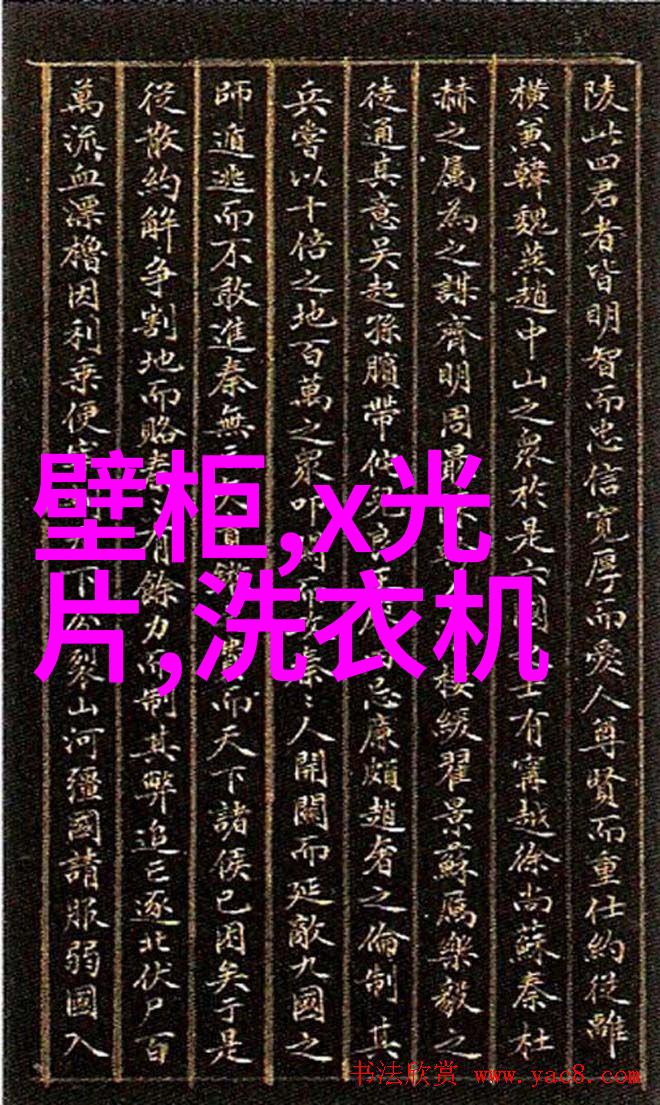 陵此四君者皆明智而忠信寬厚而愛人尊賢而重仕約從離
橫兼韓魏燕趙中山之眾於是六國士有甯越徐尚蘇秦杜
赫之属為之謀齊明周最樓緩翟景蘇厲樂毅之
徒通其意吴起孫臏帶佗兒良忌廉頗趙奢之倫制其
兵嘗以十倍之地百萬之眾叩關而秦〻人開關而延敵九國之
師遁逃而不敢進秦無矢而天下諸侯已困矣于是
從散約解争割地而賂秦有餘力而制其弊追亡逐北伏尸百
萬流血漂櫓因利乘便下分裂山河彊國請服弱國入
壁柜,x光
片,洗衣机
书法欣赏 www.yac8.com